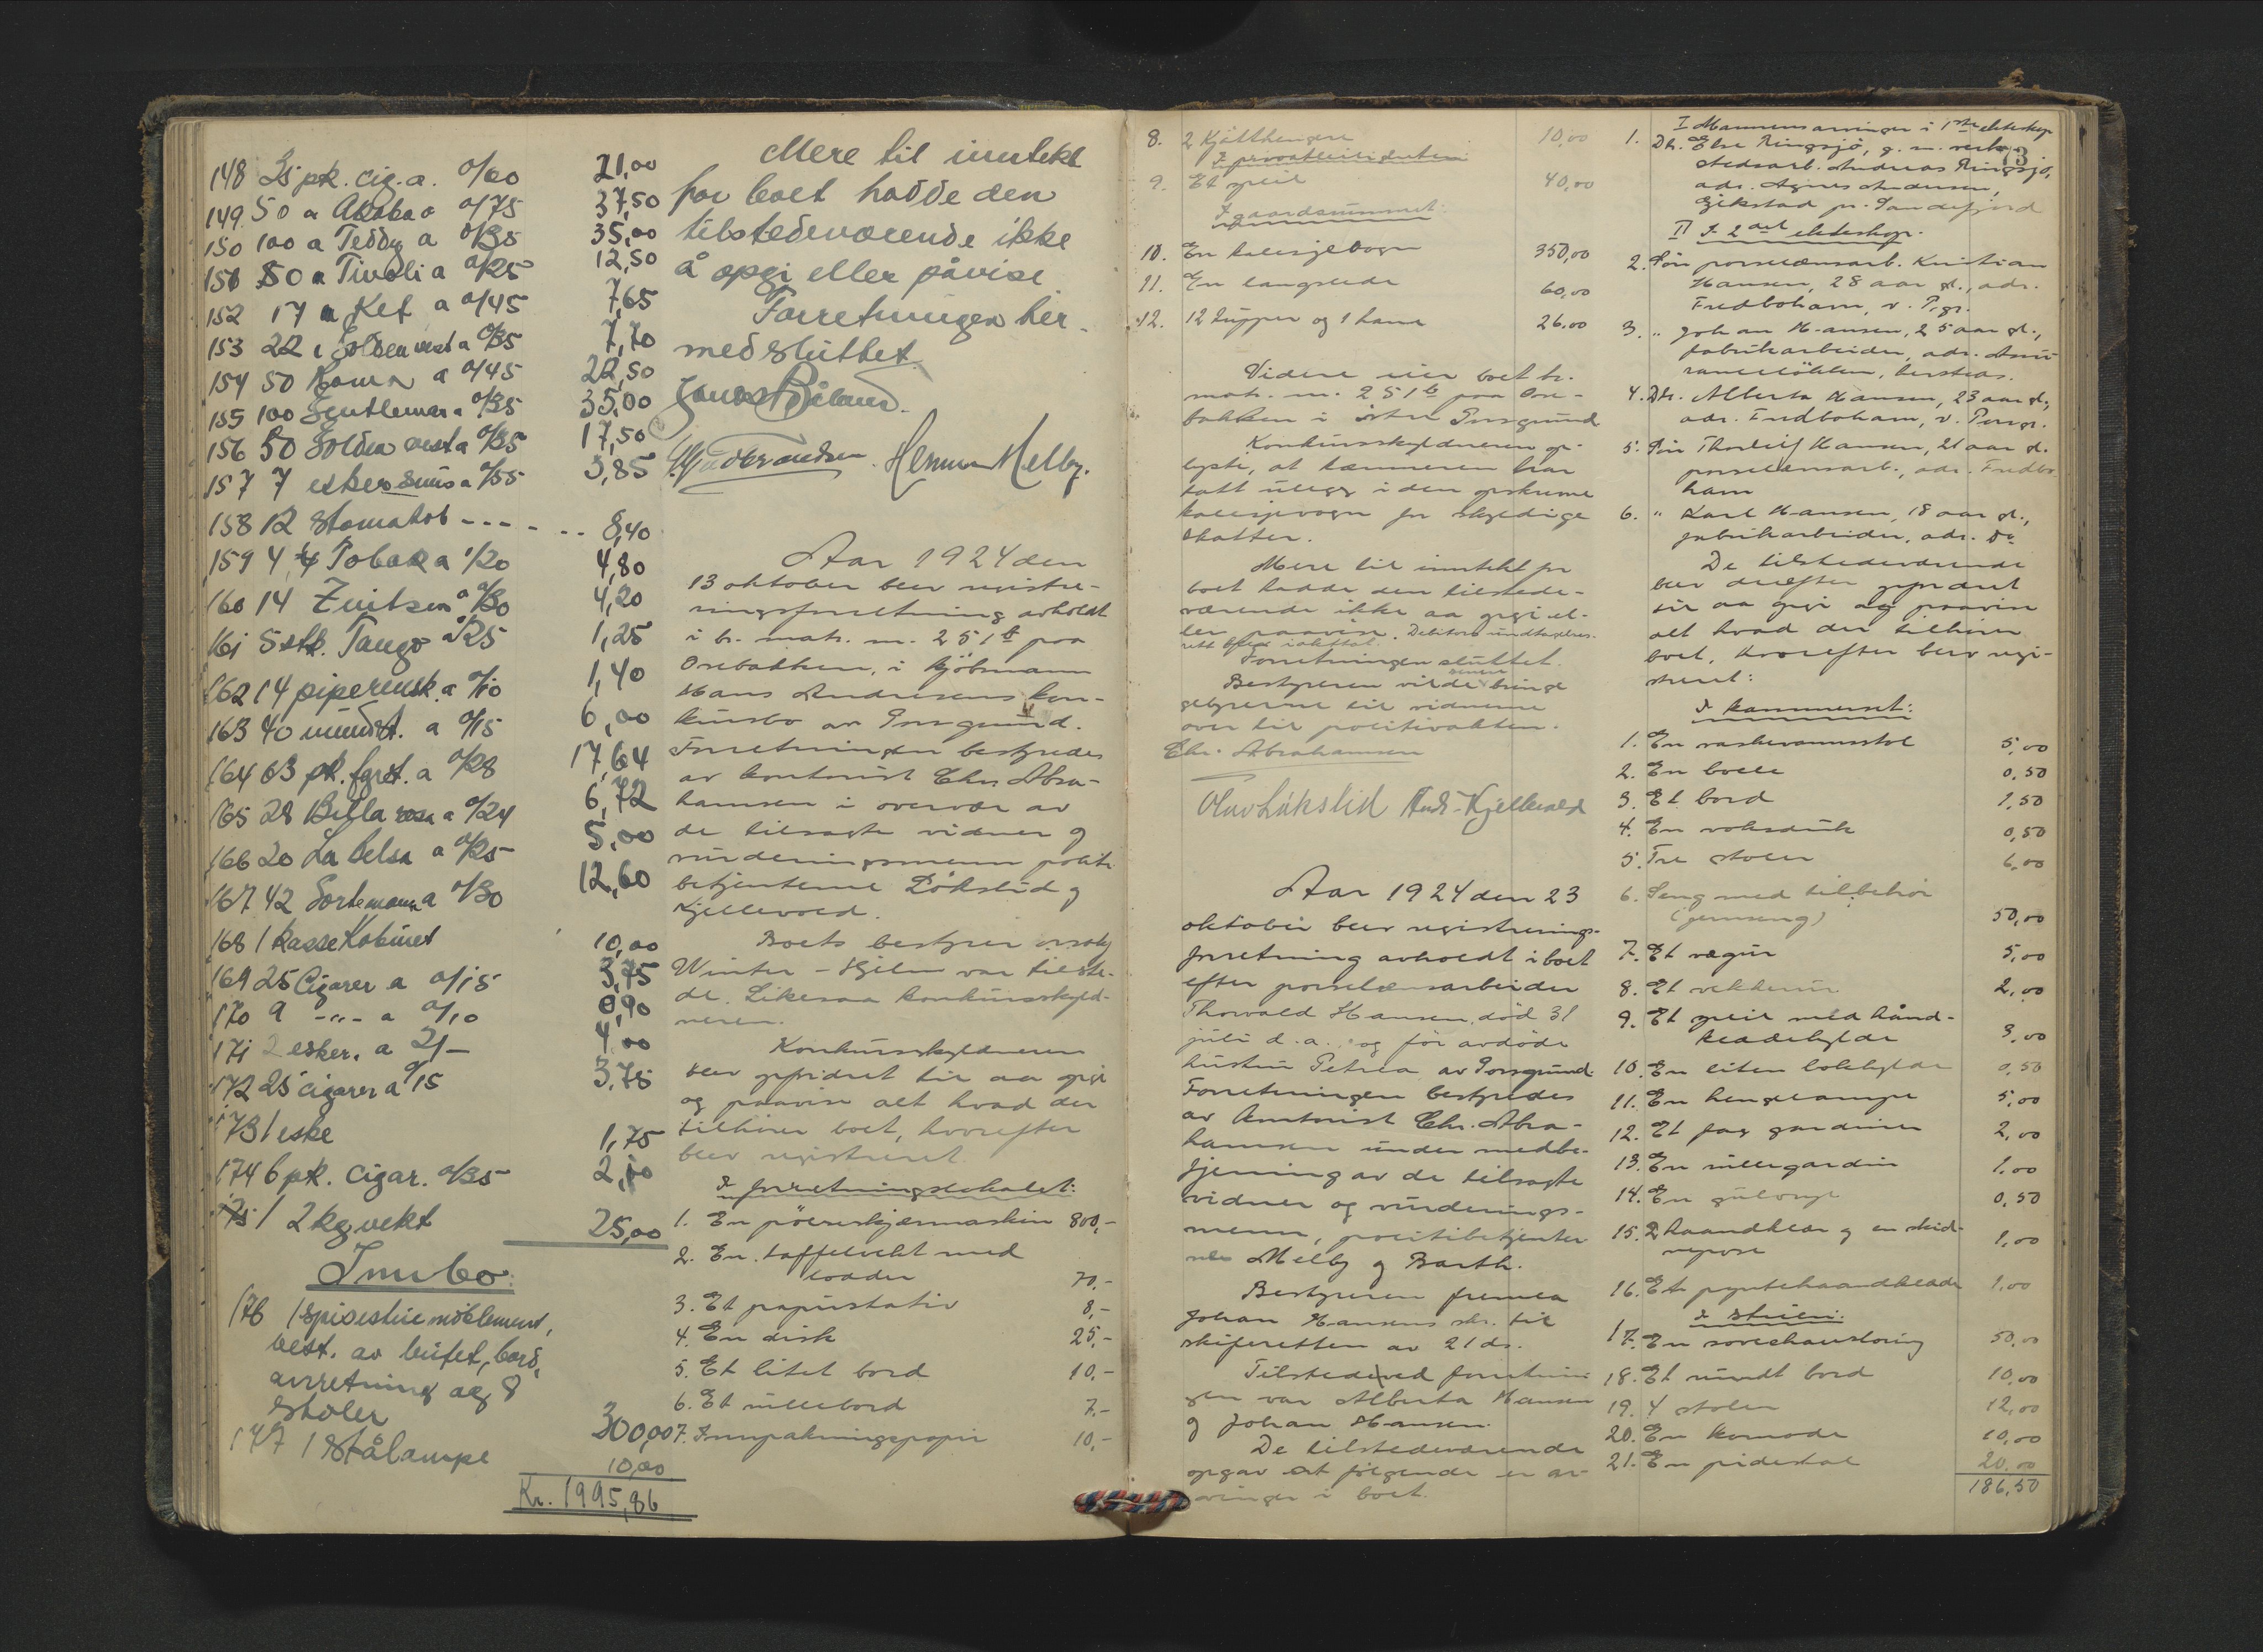 148 35 pk. cig. a. 0/60 21,00
149. 50 a Abdulla 0/75 37,50
150 100 a Teddy a 0/35 35,00
151 50 a Tivoli a 0/25 12,50
152 17 a Kef a 0/45 7,65
153 22 Golden west a 0/35 7,70
154 50 Roma a 0/45 22,50
155 100 Gentleman a 0/35 35,00
156 50 Golden west a 0/35 17,50
157 7 esker snus a 0/55 3,85
158 12 Stomatol - - - - 8,40
159 4 Tobak a 1/20 4,80
160 14 a 0/30 4,20
161 5 stk. Tango a 0/25 1,25
162 14 piperensk. a 0/10 1,40
163 40 mundst. a 0/15 6,00
164 63 pk. fyrst. a 0/28 17,64
165 28 Bella rosa a 0/24 6,72
166 20 La Belsa a 0/25 5,00
167 42 Sortemann a 0/30 12,60
168 1 kasse Kabinet 10,00
169 25 Cigarer a 0/15 3,75
170 9 -"- a 0/10 0,90
171 2 esker. a 2/- 4,00
172 25 cigarer a 0/15 3,75
173 1 eske 1,75
174 6 pk. cigar. 0/35 2,10
175 1 2 kg vekt 25,00
Innbo:
176 1 spisestuemøblement,
best. av bufet, bord,
anretning og 8
stoler 300,00
177 1 Stålampe 10,00
Kr. 1995,86
Mere til inntekt
for boet hadde den
tilstedeværende ikke
å opgi eller påvise
Forretningen her-
med sluttet.
Herman Melby.
Aar 1924 den
13 oktober blev registre-
ringsforretning avholdt
i br. matr. nr. 251 b paa
Osebakken, i kjøbmann
Hans Andresens kon-
kursbo av Porsgrund.
Forretningen bestyredes
av kontorist Chr. Abra-
hamsen i overvær av
de tilsagte vidner og
vurderingsmenn politi
betjenterne Løkslid og
Kjellevold.
Boets bestyrer orsakf
Winter-Hjelm var tilste-
de. Likesaa konkursskyld-
neren.
Konkursskyldneren
blev opfordret til aa opgi
og paavise alt hvad der
tilhører boet, hvorefter
blev registreret.
I forretningslokalet:
1. En pølseskjærmaskin 800,-
2. En taffelvekt med
lodder 70,-
3. Et papirstativ 8,-
4. En disk 25,-
5. Et litet bord 10,-
6. Et rullebord 7,-
7. Innpakningspapir 10,-
8. 2 kjøtthengere 10,00
I privatleiligheten
9. Et speil 40,00
I gaardsrummet:
10. En kalesjevogn 350,00
11. En langslede 60,00
12. 12 høner og 1 hane 26,00
Videre eier boet br.
matr. nr. 251 b paa Ose-
bakken i østre Porsgrund
Konkursskyldneren op-
lyste, at kæmneren har
tatt utlegg i den opskrevne
kalesjevogn for skyldige
skatter.
Mere til inntekt for
boet hadde den tilstede-
værende ikke aa opgi el-
ler paavise. Debitors undtagelses-
rett blev iakttat.
Forretningen sluttet.
Bestyreren vilde senere bringe
gebyrerne til vidnerne
over til politivakten.
Chr. Abrahamsen
Olav Løkslid And. Kjellevold
Aar 1924 den 23
oktober blev registrerings-
forretning avholdt i boet
efter porselænsarbeider
Thorvald Hansen, død 31
juli d.a. og før avdøde
hustru Petrea av Porsgrund.
Forretningen bestyredes
av kontorist Chr. Abra-
hamsen under medbe-
tjening av de tilsagte
vidner og vurderings-
menn, politibetjenter
ne Melby og Barth.
Bestyreren fremla
Johan Hansens skr. til
skifteretten av 21 ds.
Tilstede ved forretnin
gen var Alberta Hansen
og Johan Hansen.
De tilstedeværende
opgav at følgende er ar-
vinger i boet.
73
I Mannens arvinger i 1ste ekteskap
1. Dtr. Else Ringsjø, g. m. verk-
stedsarb. Andreas Ringsjø,
adr. Agnes Andersen,
Gjekstad pr. Sandefjord
II I 2det ekteskap.
2. Søn porselænsarb. Kristian
Hansen, 28 aar gl., adr.
Fredboham, v. Porsgr.
3. " Johan Hansen, 25 aar gl.,
fabrikarbeider, adr. Assu-
ranseløkken, hersteds.
4. Dtr. Alberta Hansen, 23 aar gl.,
adr. Fredboham, v. Porsgr.
5. Søn Thorleif Hansen, 21 aar gl.
porselænsarb., adr. Fredbo-
ham
6. " Karl Hansen, 18 aar gl.,
fabrikarbeider, adr. Do
De tilstedeværende
blev derefter opfordret
til aa opgi og paavise
alt hvad der tilhører
boet, hvorefter blev regi-
streret:
I kammerset:
1. En vaskevannsstol 5,00
2. En bolle 0,50
3. Et bord 1,50
4. En voksduk 0,50
5. Tre stoler 6,00
6. Seng med tilbehør
(jernseng) 50,00
7. Et vægur 5,00
8. Et vekkerur 2,00
9. Et speil med hånd-
klædehylde 3,00
10. En liten bokhylde 0,50
11. En hengelampe 5,00
12. Et fag gardiner 2,00
13. En rullegardin 1,00
14. En gulvrye 0,50
15. 2 haandklær og en skid-
nepose 1,00
16. Et pyntehaandklæde 1,00
I stuen:
17. En sovechaiselong 50,00
18. Et rundt bord 10,00
19. 4 stoler 12,00
20. En komode 10,00
21. En pidestal 20,00
186,50